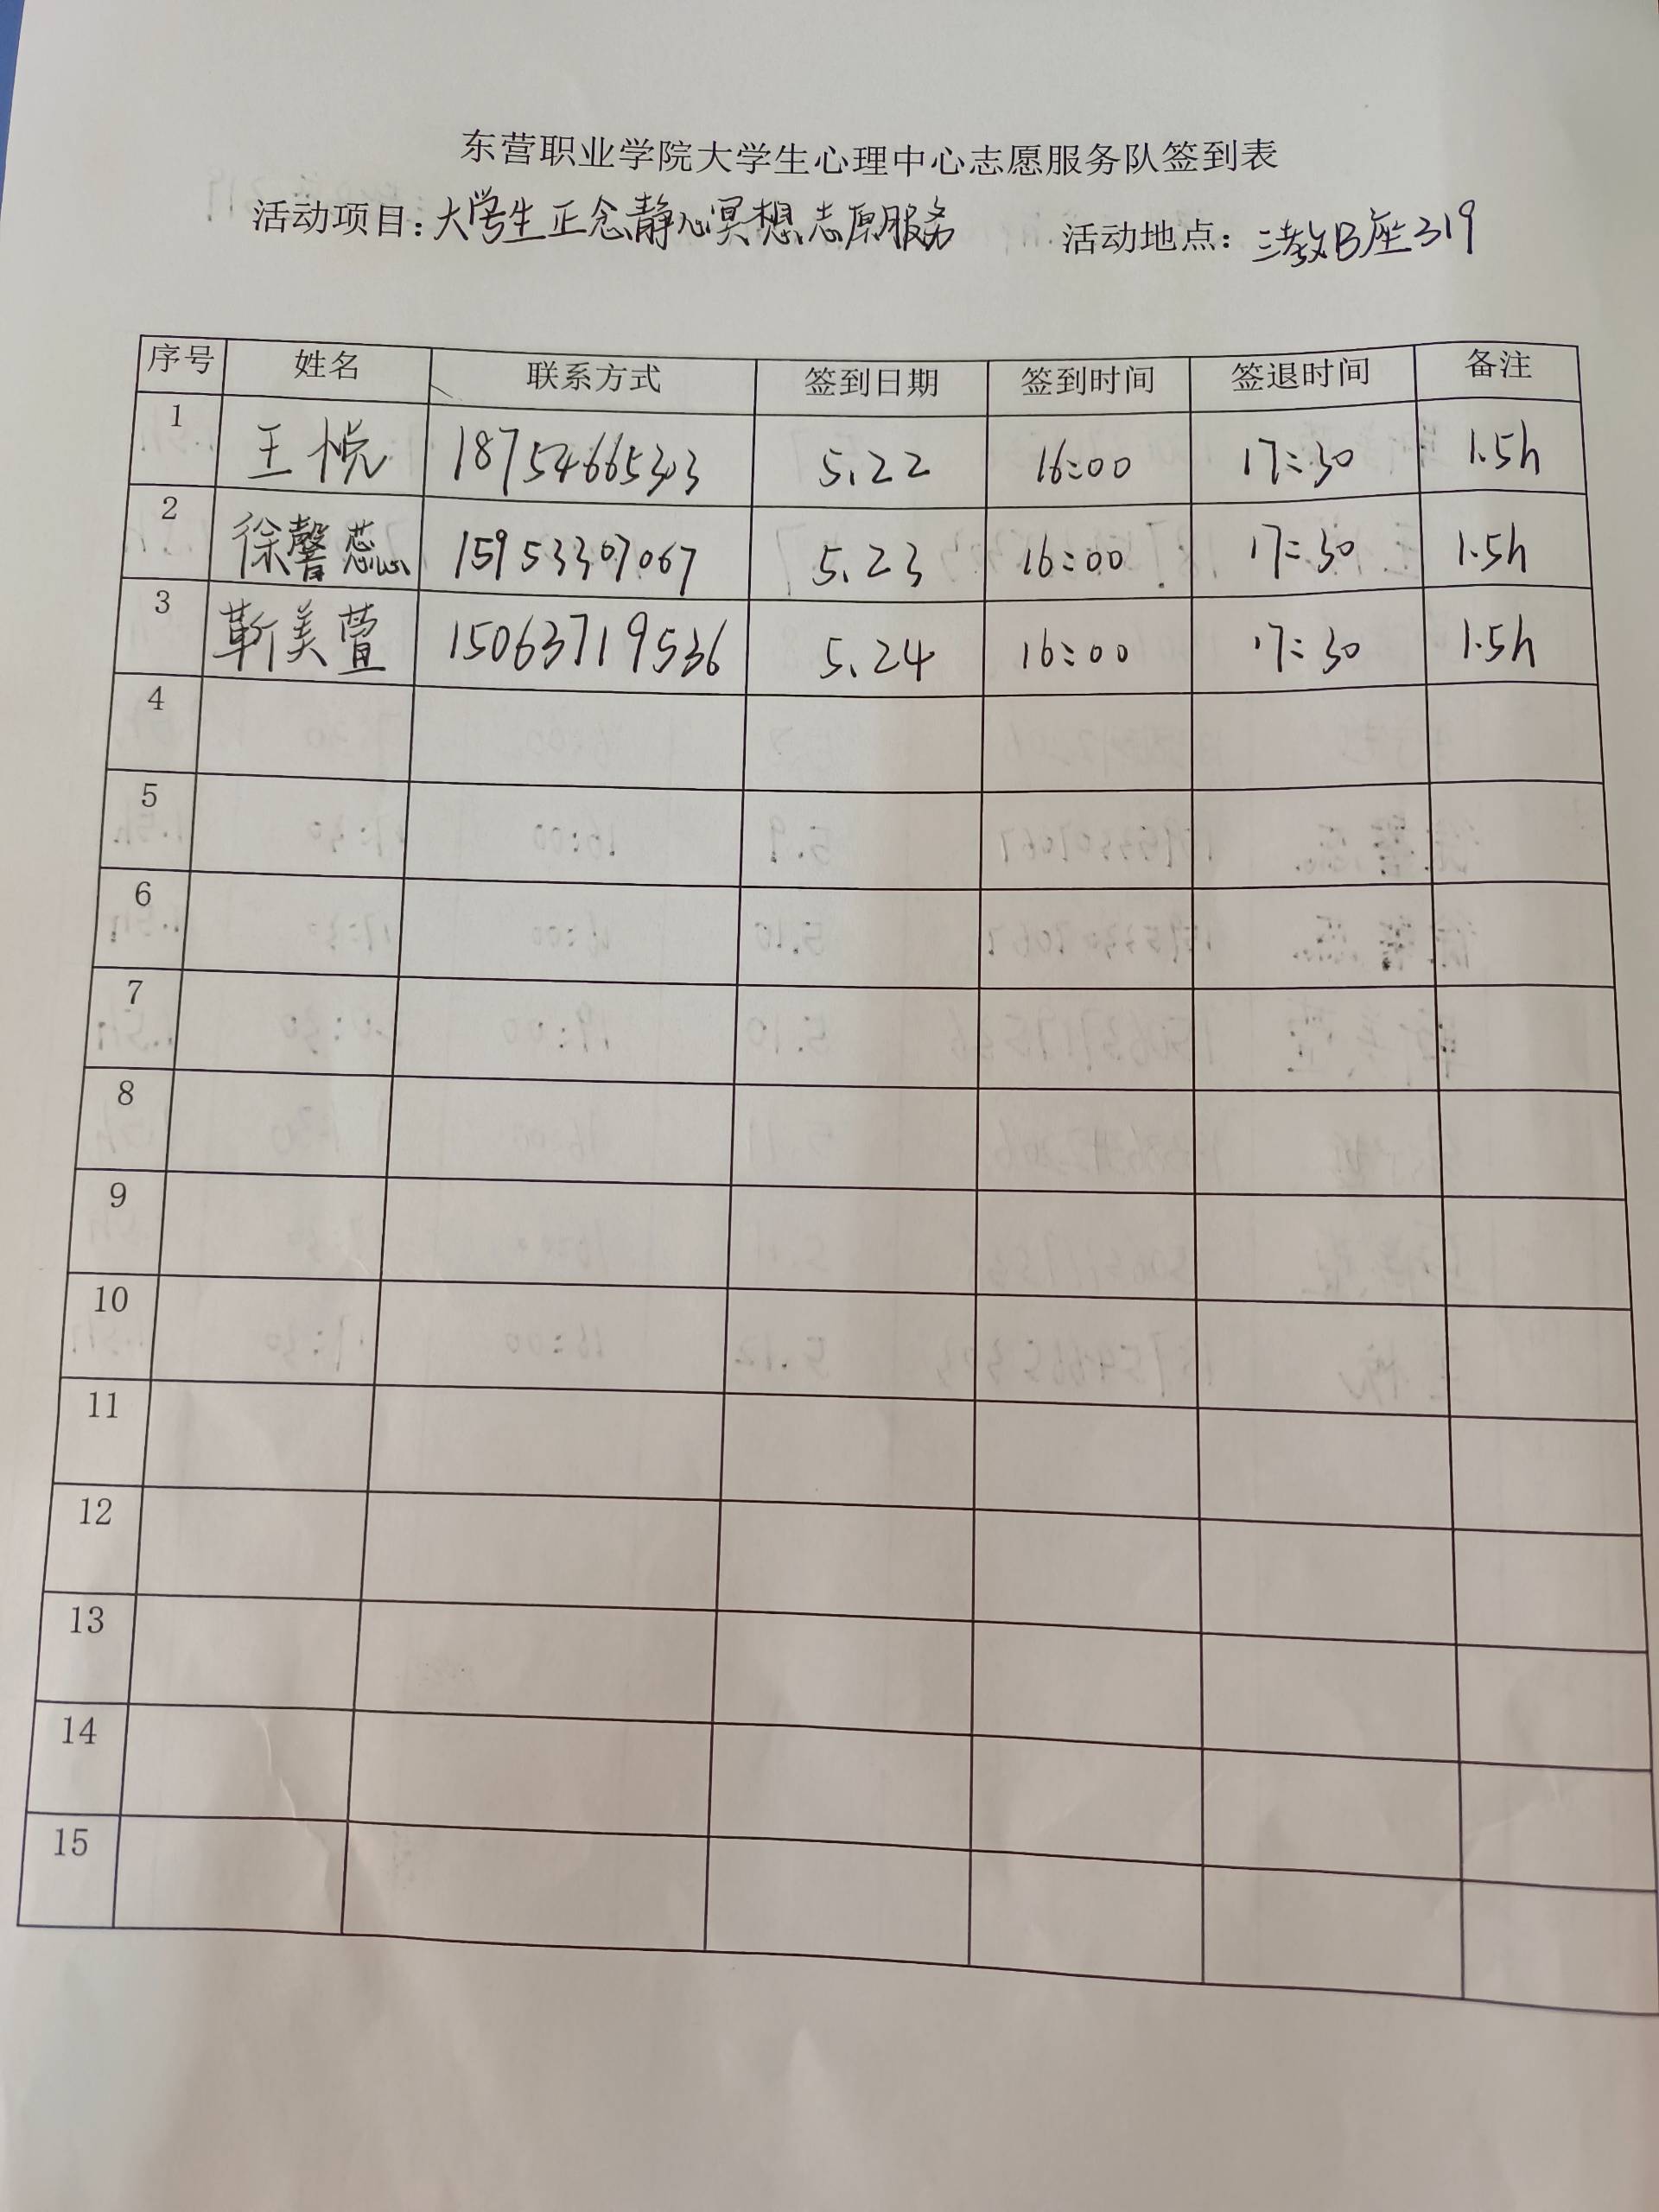 东营职业学院大学生心理中心志愿服务队签到表
活动项目：大学生正念静心冥想志愿服务 活动地点：三教B座319
序号 姓名 联系方式 签到日期 签到时间 签退时间 备注
1 王悦 18754665303 5.22 16:00 17:30 1.5h
2 徐馨蕊 15953307067 5.23 16:00 17:30 1.5h
3 靳美萱 15063719536 5.24 16:00 17:30 1.5h
4
5
6
7
8
9
10
11
12
13
14
15